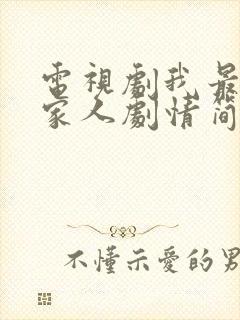 電視劇我最
家人劇情简
不懂示愛的男